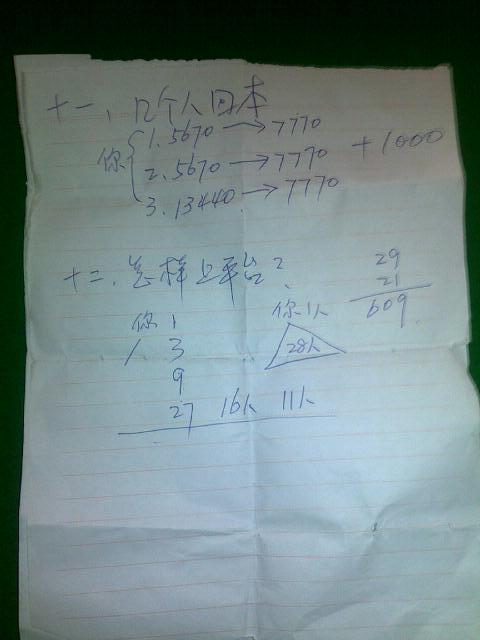 十一、几个人回本
1.5670→7770
你 2.5670→7770 +1000
3.13440→7770
十二、怎样上平台?
29
21
609
你 1
3
9
27 16人 11人
你1人
28人